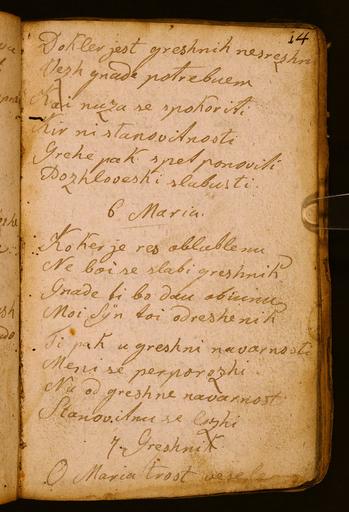 14
Dokler jest greshnih nesrezhn
Vezh gnade potrebuem
Kai nuza se spokoriti
Kir ni stanovitnosti
Grehe pak spet ponoviti
Dozhloveski slabusti.
6 Maria.
Koker je res oblublenu
Ne boi se slabi greshnik
Gnade ti bo dau obiunu
Moi Sÿn toi odreshenik
Ti pak u greshni navarnosti
Meni se perporozhi
Na od greshne navarnost
Stanovitnu se lozhi
7. Greshnik
O Maria trost vesele